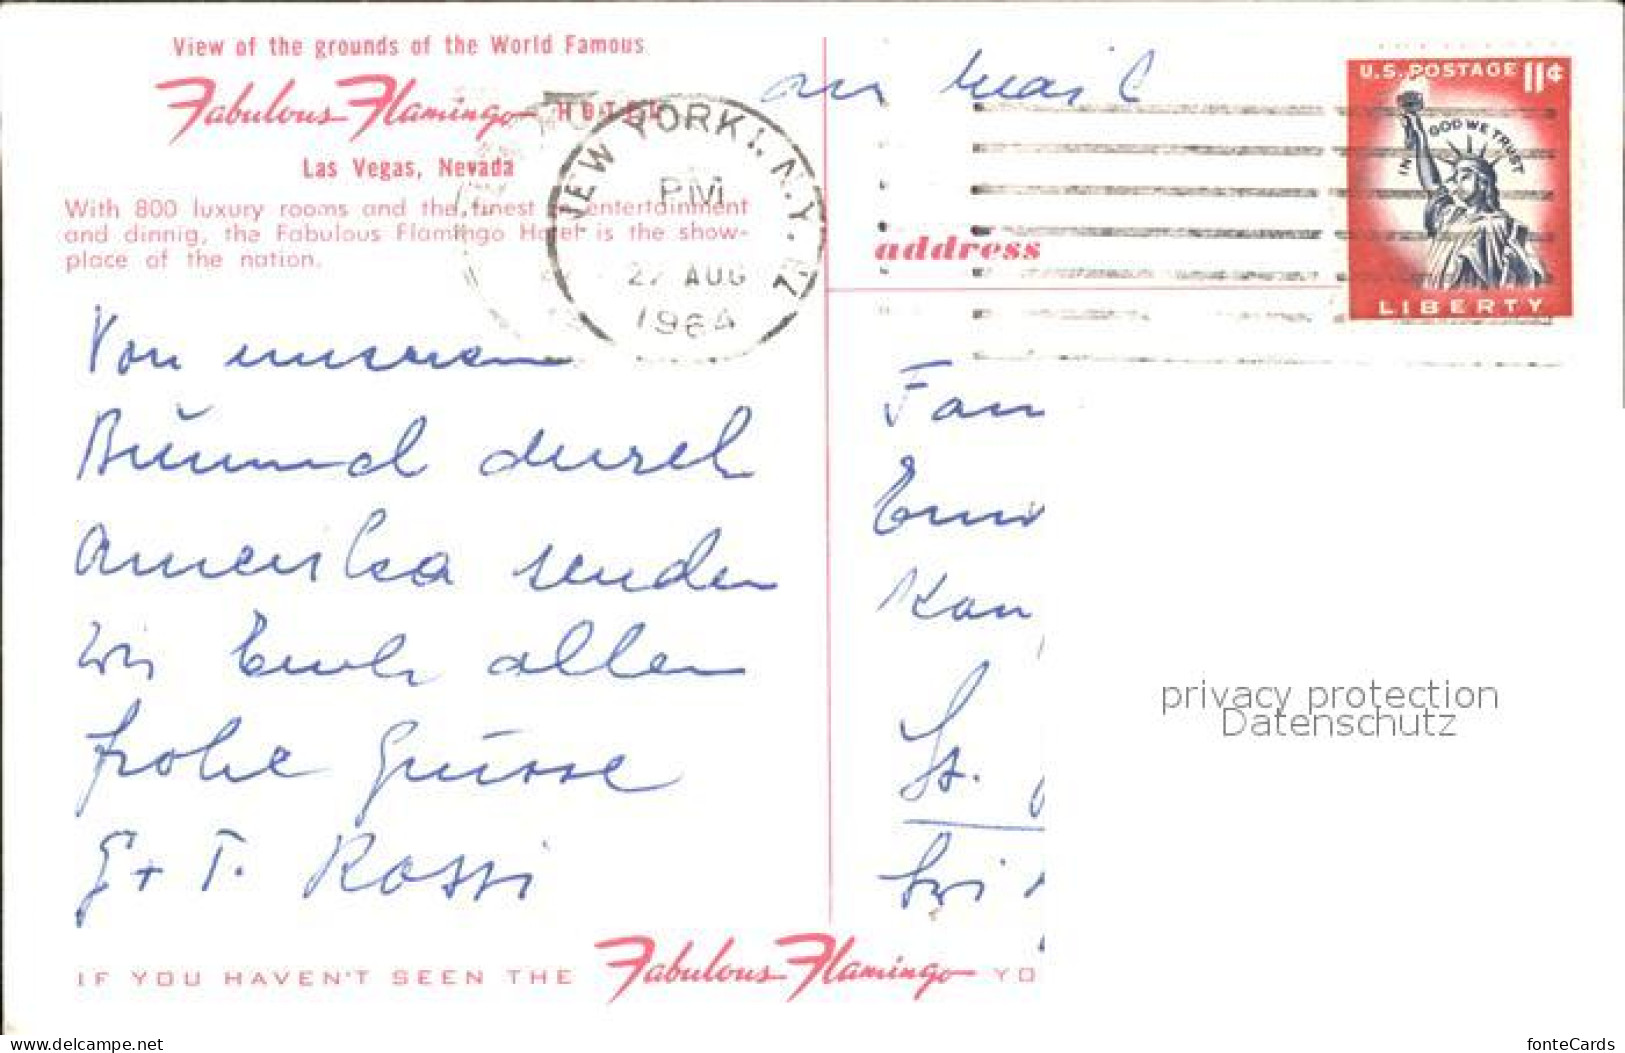 View of the grounds of the World Famous
Fabulous Flamingo HOTEL
Las Vegas, Nevada
With 800 luxury rooms and the finest in entertainment
and dinnig, the Fabulous Flamingo Hotel is the show-
place of the nation.
Von unserem
Bummel durch
Amerika senden
wir Euch allen
frohe Grüsse
G + T. Rossi
IF YOU HAVEN'T SEEN THE Fabulous Flamingo YO
air mail
NEW YORK 1, N.Y.
PM
27 AUG
1964
U.S. POSTAGE 11¢
IN GOD WE TRUST
LIBERTY
address
Fam
Kan
St.
privacy protection
Datenschutz
www.delcampe.net
fonteCards